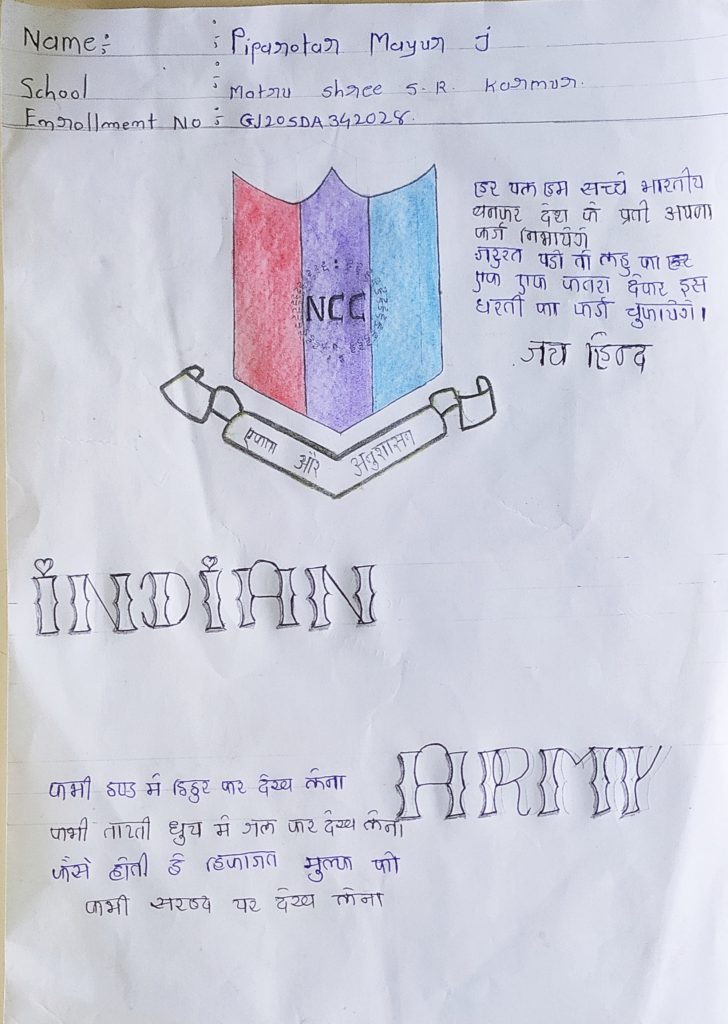 Name: : Piparotar Mayur J
School : Matru Shree S.R. Karmur.
Enrollment No : GJ20SDA342028.
हर पल हम सच्चे भारतीय
बनकर देश के प्रती अपना
फर्ज निभायेंगे
जरुरत पडी तो लहु का हर
एक एक कतरा देकर इस
धरती का कर्ज चुकायेंगे।
जय हिन्द
NCC
एकता और अनुशासन
INDIAN
ARMY
कभी ठण्ड में ठिठुर कर देख लेना
कभी तपती धुप में जल कर देख लेना
कैसे होती है हिफाजत मुल्क की
कभी सरहद पर देख लेना